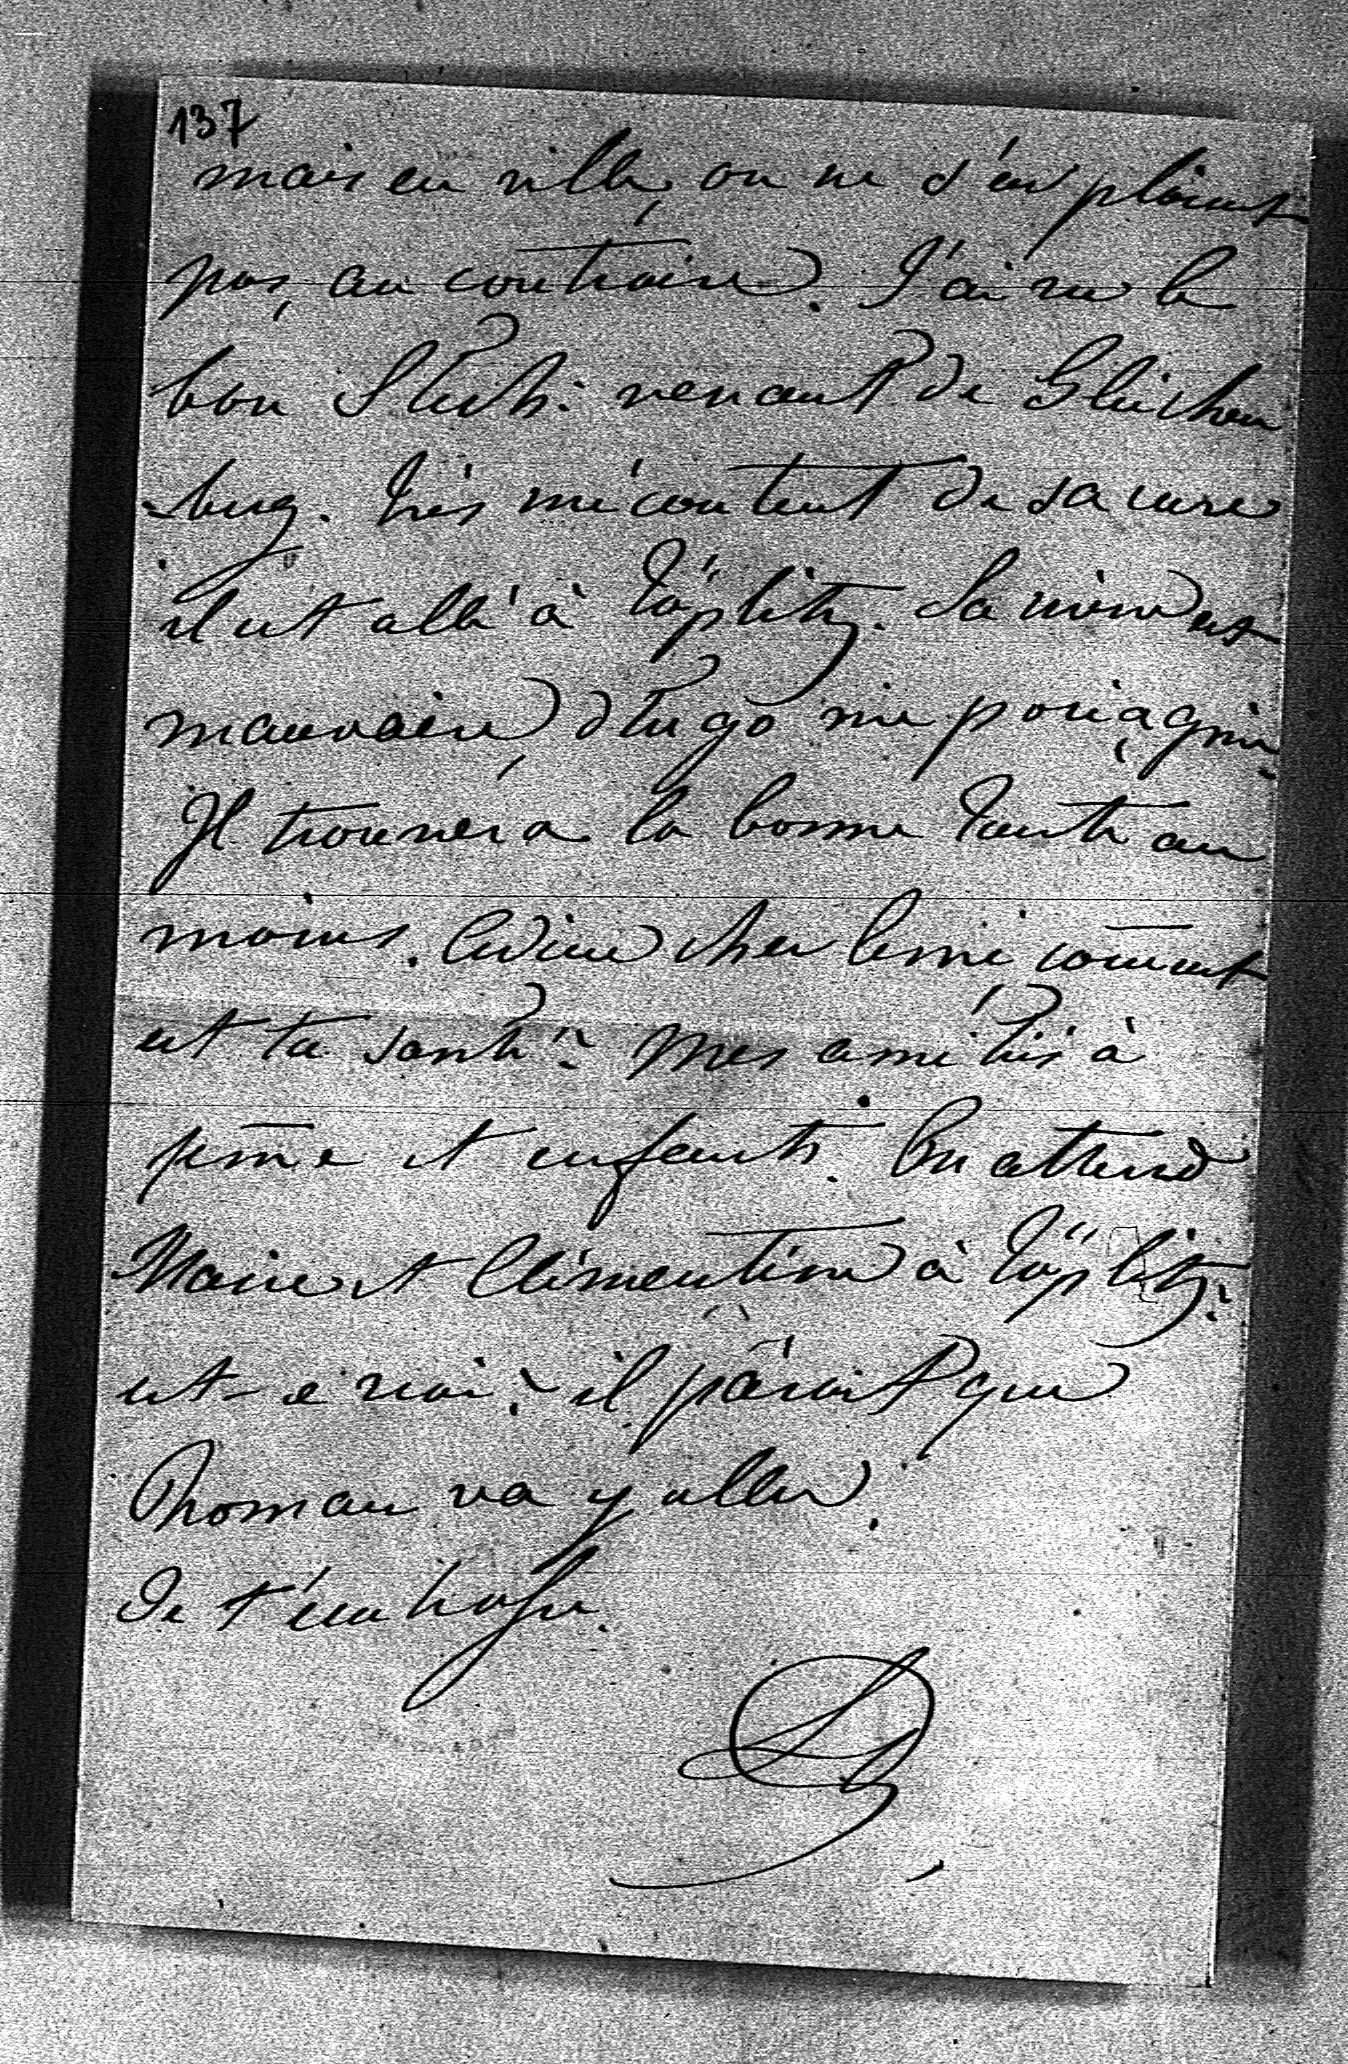 137
mais en ville, on ne s'en plaint
pas, au contraire. J'ai vu le
bon venant de Gleichen
berg. Très mécontent de sa cure
il est allé à Töplitz. Sa mine est
mauvaise, Hugo me
Il trouvera la bonne Tante au
moins. Adieu cher Ami comment
est ta santé? Mes amitiés à
fem̄e et enfants. On attend
Marie et Clémentine à Töplitz.
est-ce vrai? il parait que
Thoman va y aller.
Je t'embrasse.